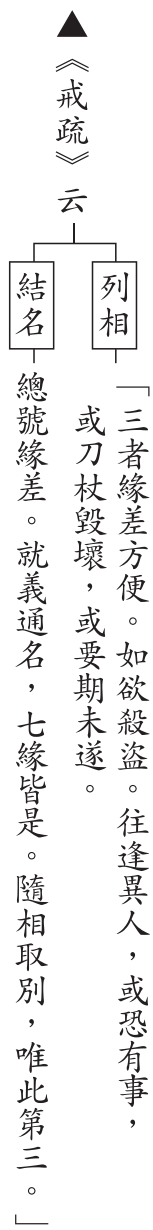 ▲《戒疏》云
列相
「三者緣差方便。如欲殺盜。往逢異人，或恐有事，
或刀杖毀壞，或要期未遂。
結名
總號緣差。就義通名，七緣皆是。隨相取別，唯此第三。」